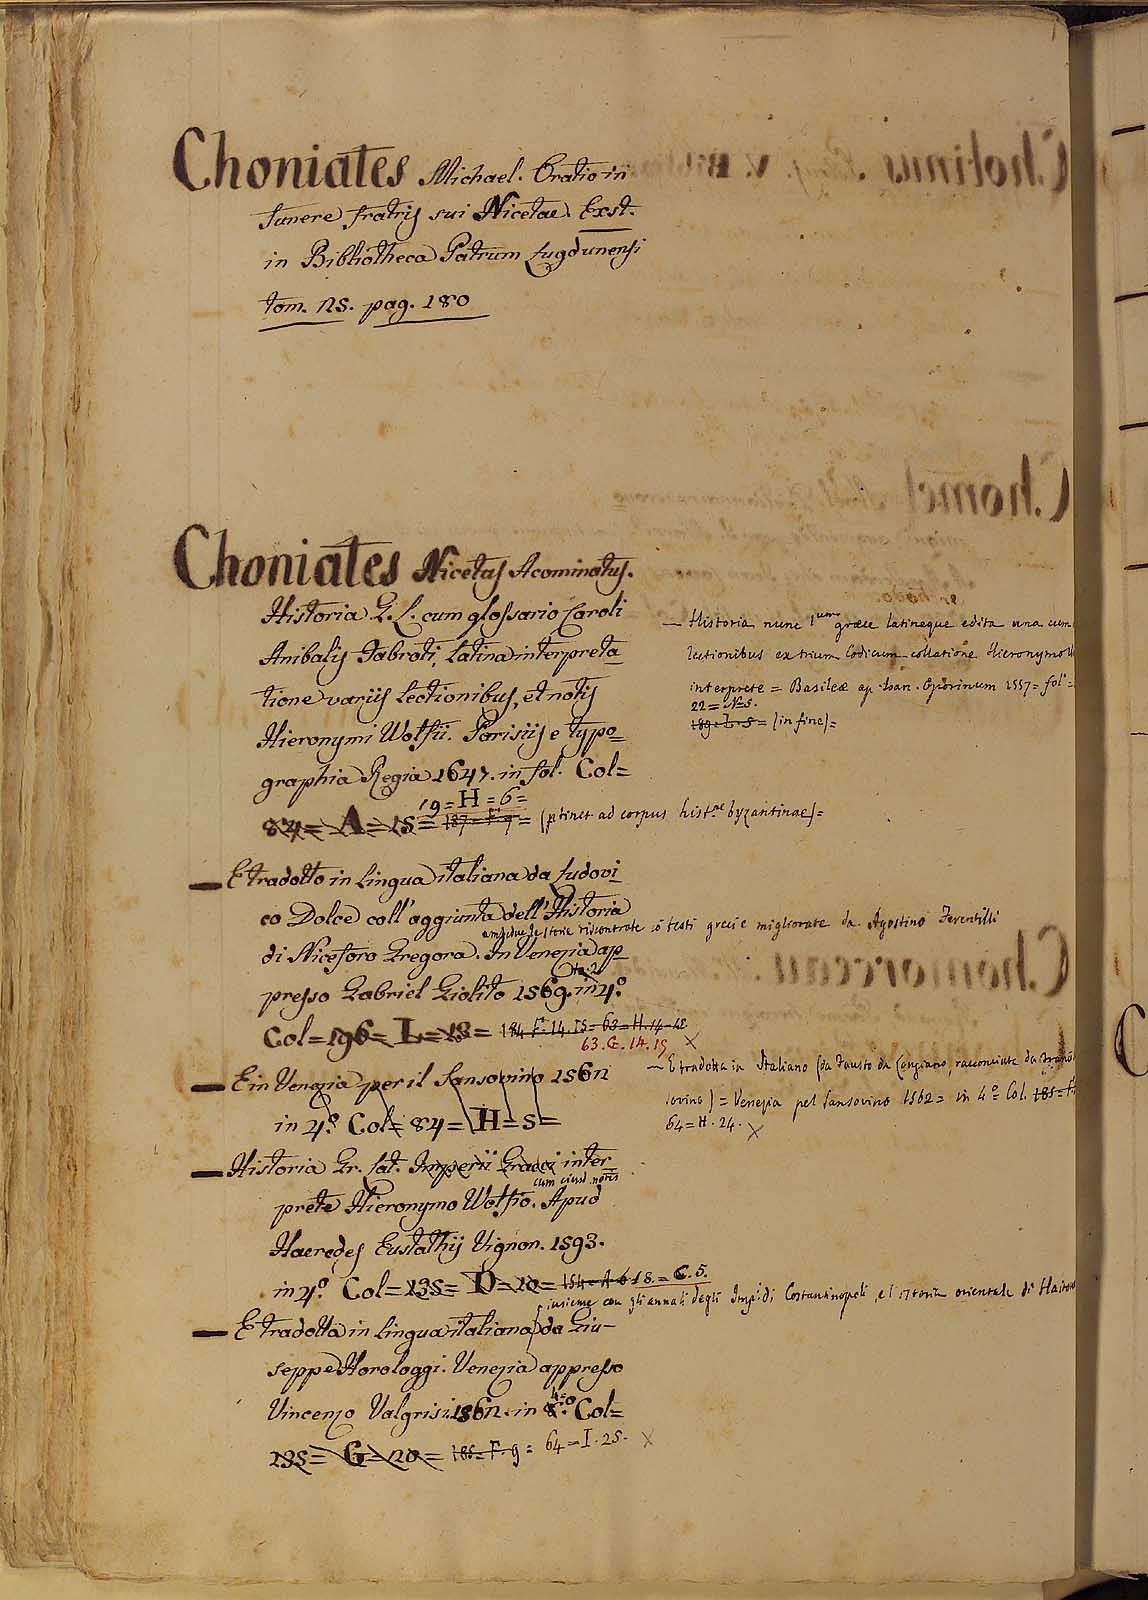 Choniates Michael. Oratio in
funere fratris sui Nicetae. Exst.
in Bibliotheca Patrum Lugdunensi
tom. 25. pag. 180
Choniates Nicetas Acominatus.
Historia G. L. cum glossario Caroli
Anibalis Fabroti, Latina interpreta=
tione variis lectionibus, et notis
Hieronymi Wolfii. Parisiis e typo=
graphia Regia 1647. in fol. Col=
19=H=6=
84= A= 15= 187=F.9= (ptinet ad corpus hist.ae byzantinae)=
— E tradotto in lingua italiana da Ludovi
co Dolce coll'aggiunta dell'Historia
amedue le storie riscontrate co testi greci e migliorate da Agostino Ferentilli
di Niceforo Gregora. In Venezia ap
presso Gabriel Giolito 1569. in 4.º
to. 2
Col=196= L=13= 184 F. 14.15= 63=H.14-15
63.G.14.15
— E in Venezia per il Sansovino 1562
in 4.º Col= 84= H=5=
— Historia Gr. Lat. Imperii Graeci inter
cum eiusd. notis
prete Hieronymo Wolfio. Apud
Haeredes Eustathij Vignon. 1593.
in 4.º Col=135= D=10= 154=A.6 18.=C.5.
insieme con gli annali degli Imp.i di Costantinopoli, e l'istoria orientale di
— E tradotta in lingua italiana da Giu-
seppe Horologgi. Venezia appresso
Vincenzo Valgrisi. 1562. in 4.º 8.º Col=
135= G=20= 185=F.9= 64=I.25. X
— Historia nunc 1um græce latineque edita una cum
lectionibus ex trium Codicum collatione Hieronymo
interprete = Basileæ ap. Ioan. Oporinum 1557= fol.=
22= N.5.
189=L.5= (in fine)=
— E tradotta in Italiano (da Fausto da Longiano, racconciata da
sovino) = Venezia pel Sansovino 1562= in 4.º Col. 185=F
64=H.24. X